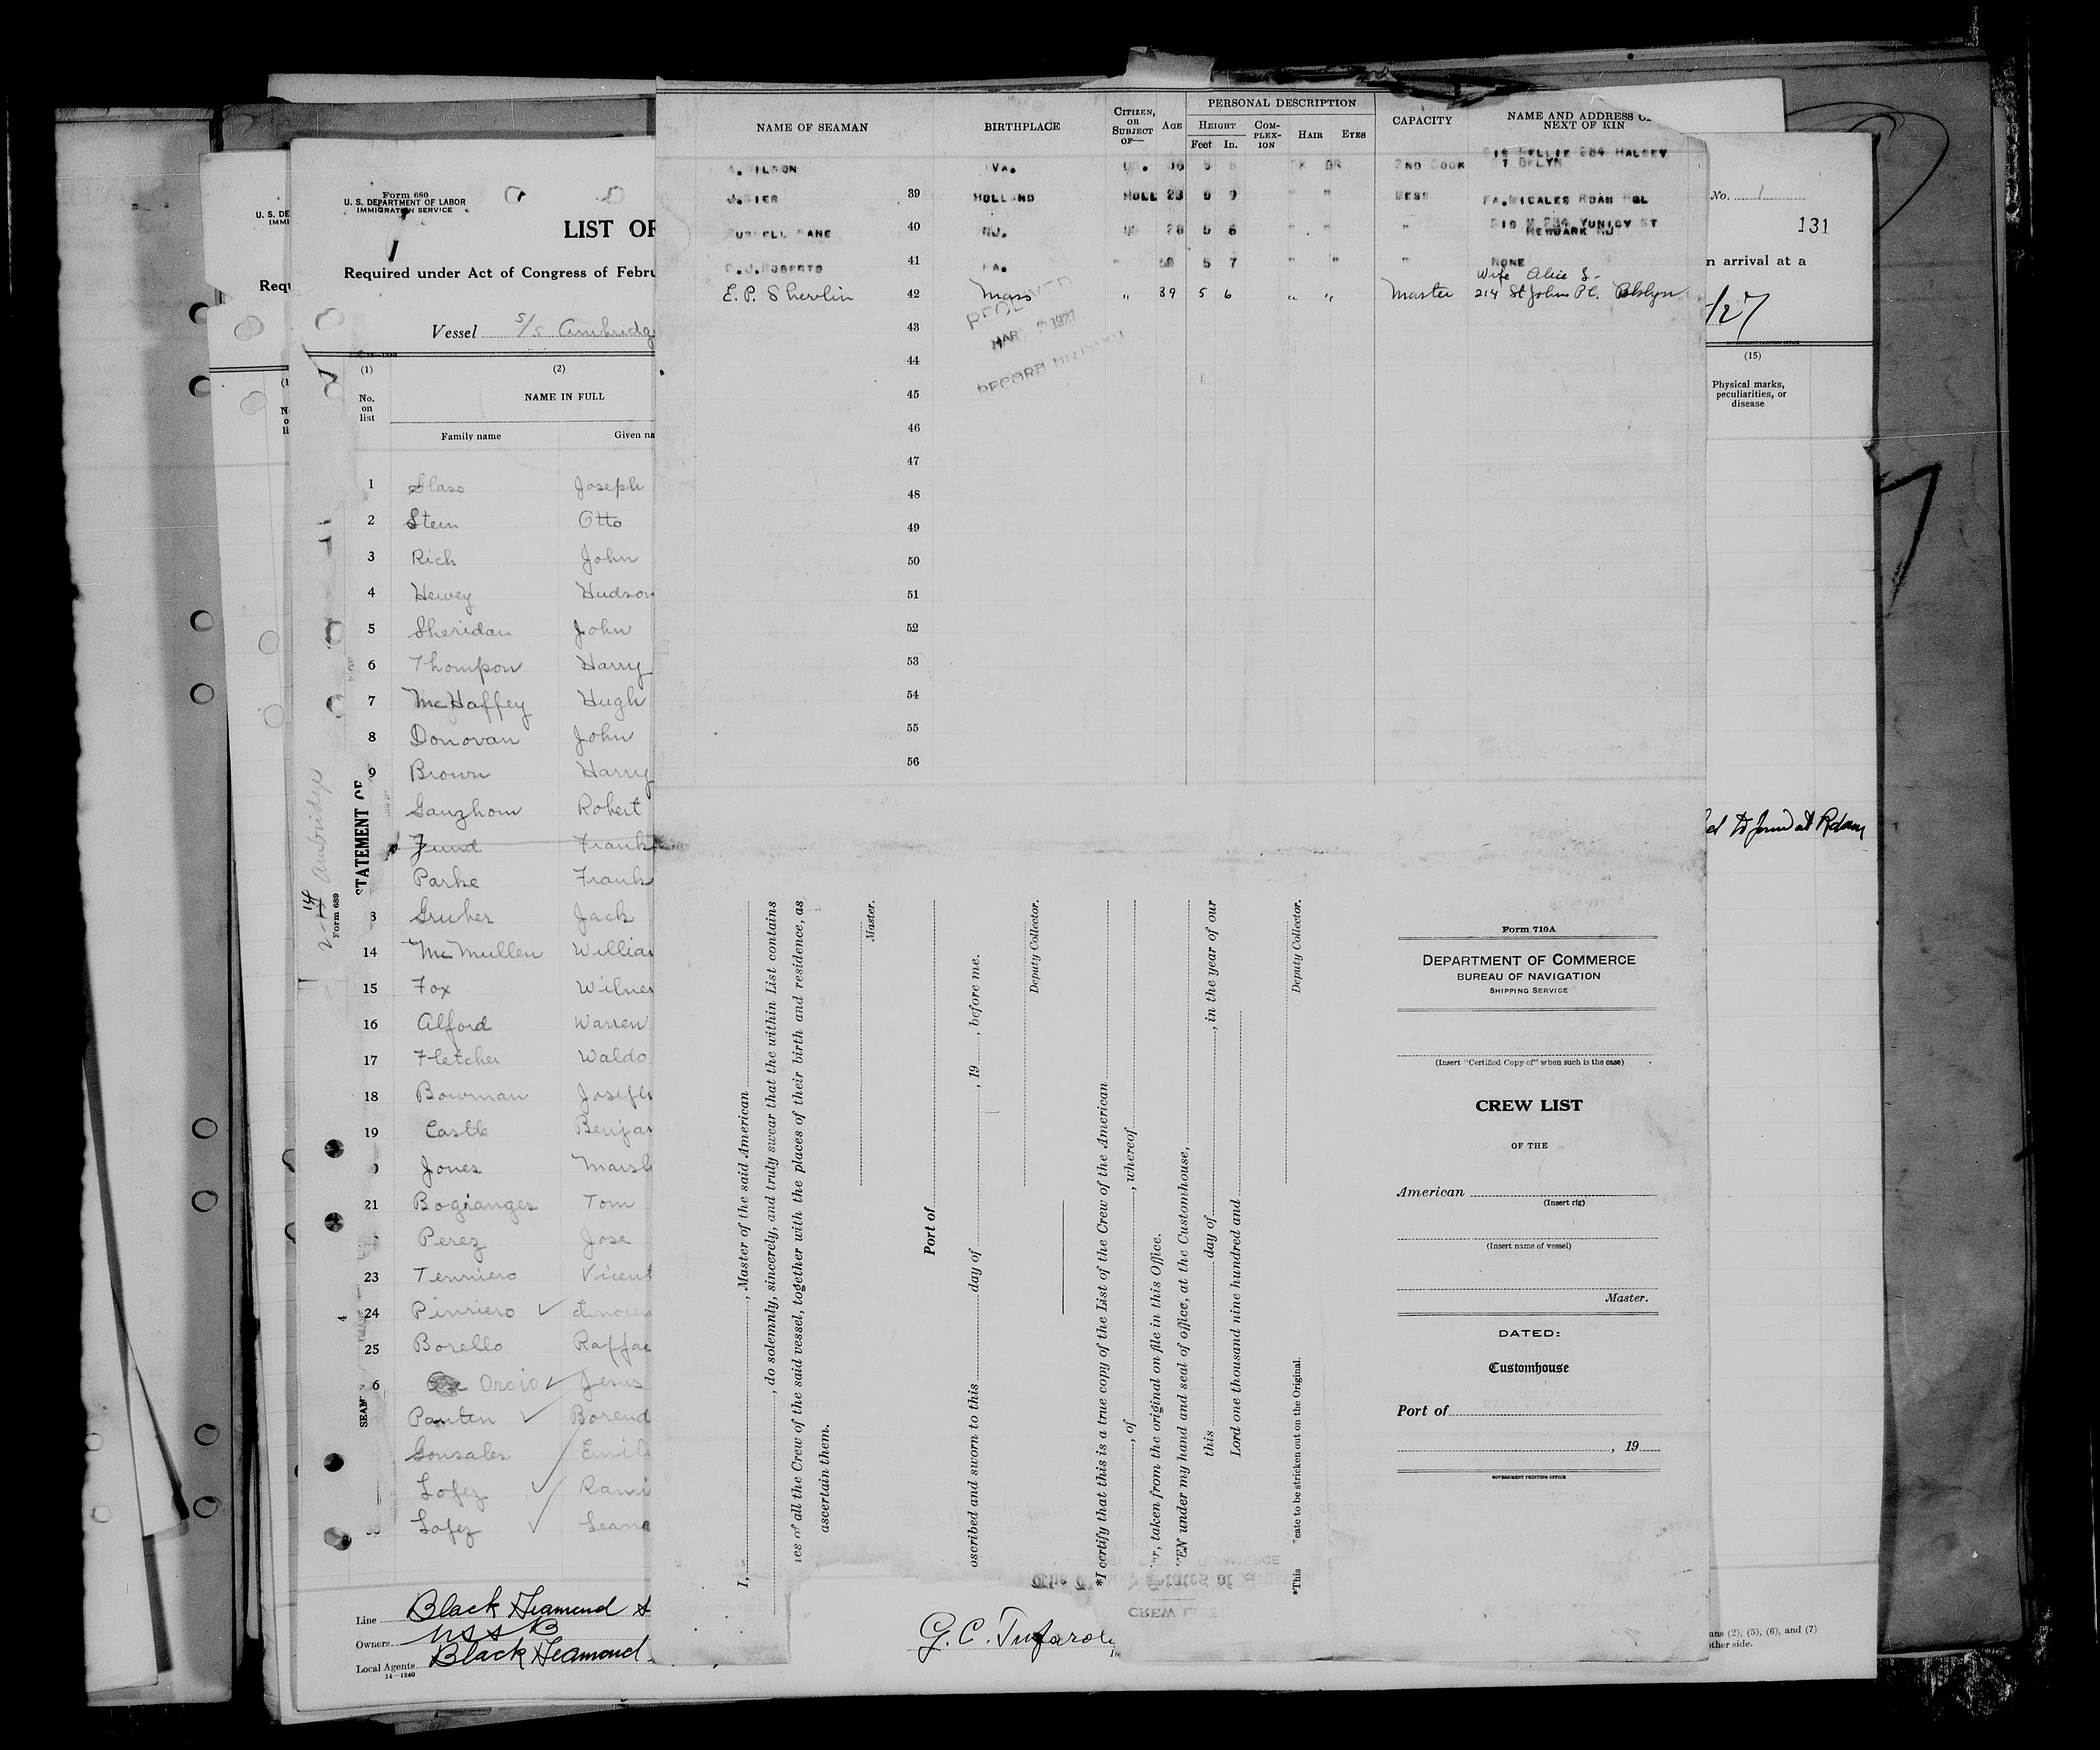 Form 680
U. S. DEPARTMENT OF LABOR
IMMIGRATION SERVICE
LIST OF
Required under Act of Congress of Febru
Vessel S/S Ambridge
(1) (2)
No. on list
NAME IN FULL
Family name Given na
1 Glass Joseph
2 Stein Otto
3 Rich John
4 Hewey Hudson
5 Sheridan John
6 Thompson Harry
7 McHaffey Hugh
8 Donovan John
9 Brown Harry
Ganzhorn Robert
Fund Frank
Parke Frank
Gruher Jack
14 McMullen Willia
15 Fox Wilmer
16 Alford Warren
17 Fletcher Waldo
18 Bowman Joseph
19 Castle Benja
Jones Marsh
21 Bogianges Tom
Perez Jose
23 Tenriero Vicent
24 Pinriero
25 Borello Raffae
6 Oroio Jesus
Panten Borend
Gonsales Emili
Lopez Rami
30 Lopez Leand
Line Black Diamond S
Owners USSB
Local Agents Black Diamond
14—1240
2-14 Ambridge
Form 689
STATEMENT OF
SEAM
U. S. DE
IMMI
Requ
NAME OF SEAMAN
BIRTHPLACE
CITIZEN, OR SUBJECT OF—
AGE
PERSONAL DESCRIPTION
HEIGHT
Feet In.
COMPLEXION
HAIR
EYES
CAPACITY
NAME AND ADDRESS O
NEXT OF KIN
ILSON VA. 36 5 BR 2ND COOK SIS NELLIE 284 HALSEY
T BKLYN
39 HOLLAND HOLL 23 5 9 " " MESS
40 NJ. 5 6 " " "
NEWARK NJ
41 ROBERTS PA. " 5 7 " " " NONE
E. P. Shevlin 42 Mass " 39 5 6 " " Master Wife Alice S-
214 St Johns Pl. Bklyn
RECEIVED
MAR 1927
RECORD DIVISION
43
44
45
46
47
48
49
50
51
52
53
54
55
56
I, , Master of the said American
, do solemnly, sincerely, and truly swear that the within List contains
es of all the Crew of the said vessel, together with the places of their birth and residence, as
ascertain them.
Master.
Port of
scribed and sworn to this day of , 19 , before me.
Deputy Collector.
*I certify that this is a true copy of the List of the Crew of the American
, of , whereof
er, taken from the original on file in this Office.
EN under my hand and seal of office, at the Customhouse,
this day of , in the year of our
Lord one thousand nine hundred and
Deputy Collector.
*This cate to be stricken out on the Original.
Form 710A
DEPARTMENT OF COMMERCE
BUREAU OF NAVIGATION
SHIPPING SERVICE
(Insert "Certified Copy of" when such is the case)
CREW LIST
OF THE
American
(Insert rig)
(Insert name of vessel)
Master.
DATED:
Customhouse
Port of
, 19
GOVERNMENT PRINTING OFFICE
G. C. Tufarol
No. 1
131
n arrival at a
/27
(15)
Physical marks, peculiarities, or disease
ed to join at Rdam
ns (2), (5), (6), and (7)
other side.